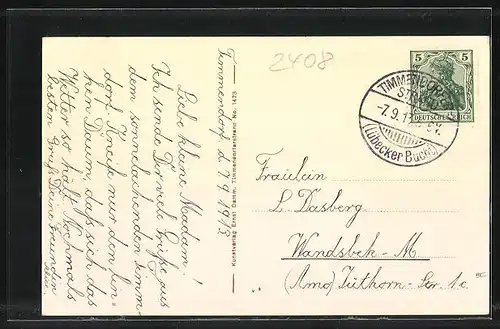 2408
Timmendorf, d. 7/9 1913
Liebe kleine Madam!
Ich sende Dir viele Grüße aus
dem sonnelachenden Timm-
dorf. Kneife nur den lin-
ken Daum, daß sich das
Wetter so hält. Nochmals
besten Gruß Deine Freundin
Kunstverlag Ernst Damm, Timmendorferstrand No. 1473
5 5
DEUTSCHES REICH
TIMMENDORFER
STRAND
-7.9.13
(Lübecker Bucht)
Fräulein
L. Dasberg
Wandsbek-M.
(Amo) Jüthorn-Str. 1c.